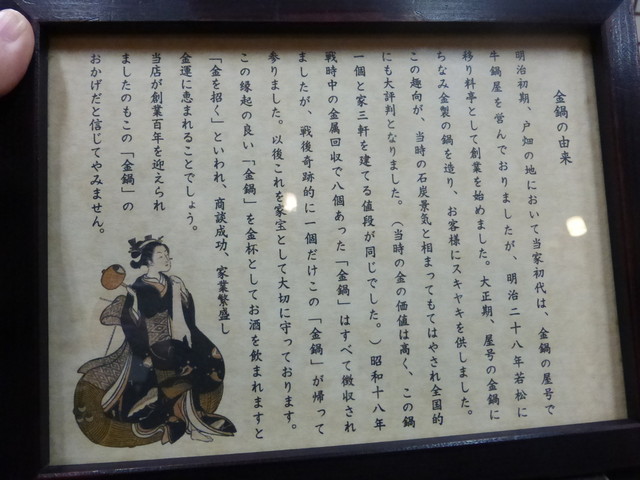 金鍋の由来
明治初期、戸畑の地において当家初代は、金鍋の屋号で
牛鍋屋を営んでおりましたが、明治二十八年若松に
移り料亭として創業を始めました。大正期、屋号の金鍋に
ちなみ金製の鍋を造り、お客様にスキヤキを供しました。
この趣向が、当時の石炭景気と相まってもてはやされ全国的
にも大評判となりました。（当時の金の価値は高く、この鍋
一個と家三軒を建てる値段が同じでした。）昭和十八年
戦時中の金属回収で八個あった「金鍋」はすべて徴収され
ましたが、戦後奇跡的に一個だけこの「金鍋」が帰って
参りました。以後これを家宝として大切に守っております。
この縁起の良い「金鍋」を金杯としてお酒を飲まれますと
「金を招く」といわれ、商談成功、家業繁盛し
金運に恵まれることでしょう。
当店が創業百年を迎えられ
ましたのもこの「金鍋」の
おかげだと信じてやみません。